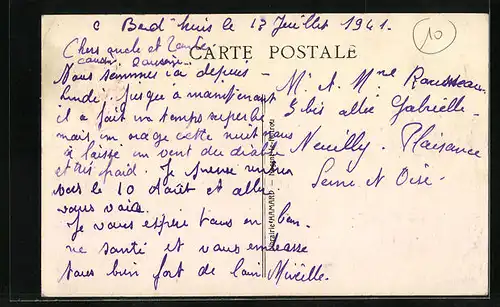 Bad' huis le 13 Juillet 1941.
10
CARTE POSTALE
Chers oncle et Tante
Cousin, Cousine.
Nous sommes ici depuis
lundi. Jusqu'à maintenant
il a fait un temps superbe
mais un orage cette nuit nous
à laissé un vent du diable
et très froid. Je pense rentrer
vers le 10 Août et aller
vous voir.
Je vous espère tous en bon-
ne santé et vous embrasse
tous bien fort de loin Mireille.
Mr et Mme Rousseau
5 bis allée Gabrielle
Neuilly - Plaisance
Seine et Oise.
Librairie HAMARD